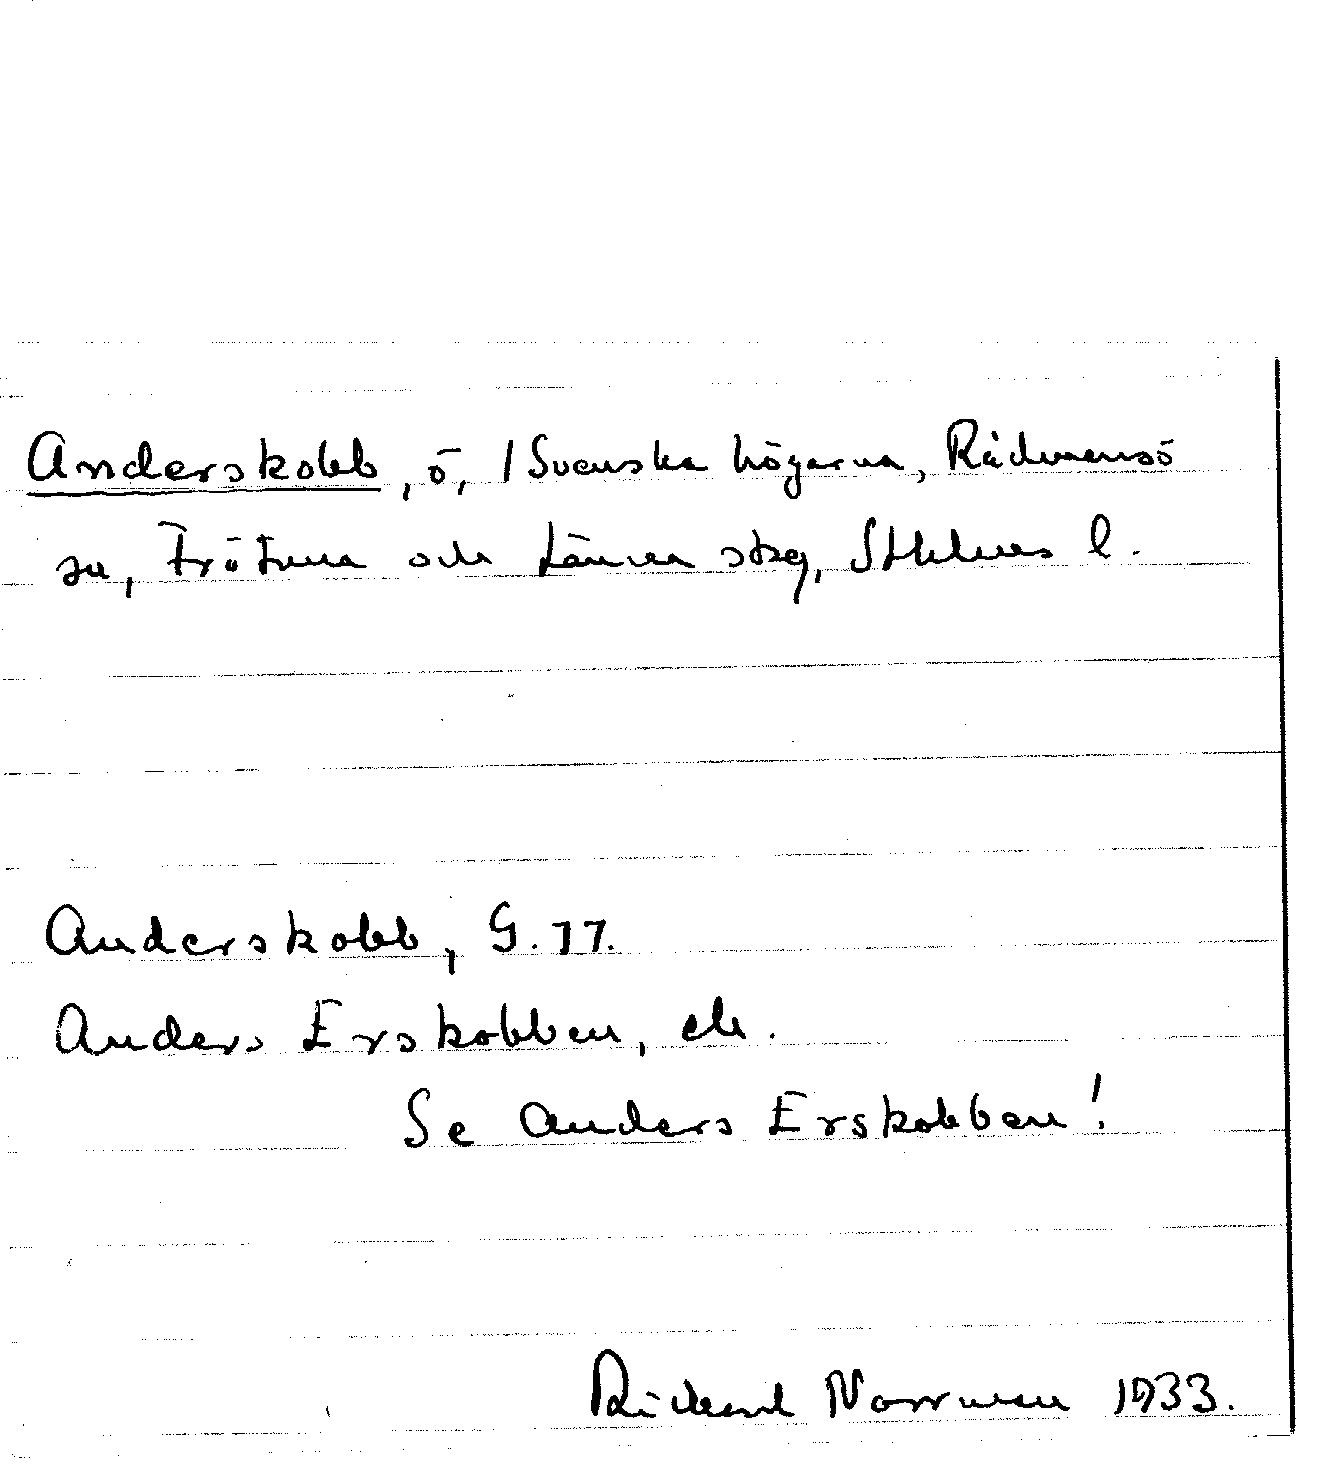 Anderskobb, ö, i Svenska högarna, Rådmansö
sn, Frötuna och Länna skg, Sthlms l.
Anderskobb, G. 77.
Anders Erskobben, etc.
Se Anders Erskobben!
Rickard Norrman 1933.